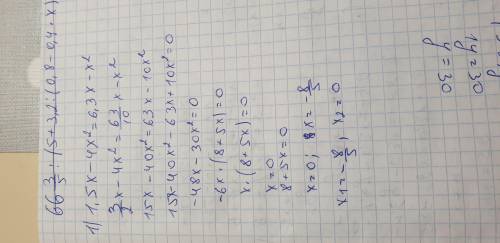 66 3/5 : (5+3,2 : (0,8 - 0,4 · x)
1) 1,5x - 4x² = 6,3x - x²
3/2 x - 4x² = 63/10 x - x²
15x - 40x² = 63x - 10x²
15x - 40x² - 63x + 10x² = 0
-48x - 30x² = 0
-6x · (8+5x) = 0
x · (8+5x) = 0
x = 0
8+5x = 0
x = 0; x = -8/5
x1 = -8/5, x2 = 0
1y = 30
y = 30